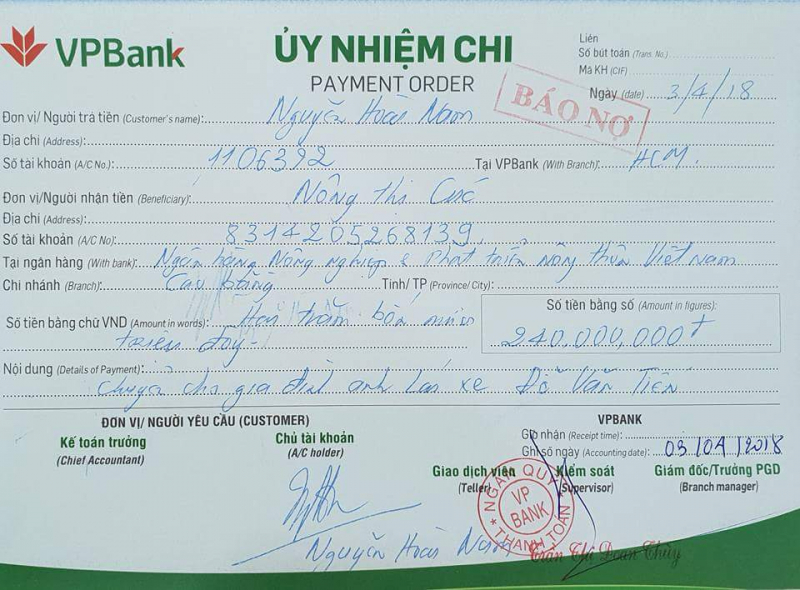 VPBank
ỦY NHIỆM CHI
PAYMENT ORDER
Liên
Số bút toán (Trans. No.)
Mã KH (CIF)
Ngày (date) 3/4/18
BÁO NỢ
Đơn vị/ Người trả tiền (Customer's name): Nguyễn Hoài Nam
Địa chỉ (Address):
Số tài khoản (A/C No.): 1106392 Tại VPBank (With Branch): HCM.
Đơn vị/Người nhận tiền (Beneficiary): Nông Thị Cúc
Địa chỉ (Address):
Số tài khoản (A/C No): 8314205268139
Tại ngân hàng (With bank): Ngân hàng Nông nghiệp & Phát triển Nông thôn Việt Nam
Chi nhánh (Branch): Cao Bằng Tỉnh/ TP (Province/ City):
Số tiền bằng chữ VND (Amount in words): Hai trăm bốn mươi
triệu đồng
Số tiền bằng số (Amount in figures):
240.000.000đ
Nội dung (Details of Payment):
Chuyển cho gia đình anh lái xe Đỗ Văn Tiến
ĐƠN VỊ/ NGƯỜI YÊU CẦU (CUSTOMER)
Kế toán trưởng
(Chief Accountant)
Chủ tài khoản
(A/C holder)
Nguyễn Hoài Nam
VPBANK
Ghi nhận (Receipt time):
Ghi sổ ngày (Accounting date): 03/04/2018
Giao dịch viên
(Teller)
Kiểm soát
(Supervisor)
Giám đốc/Trưởng PGD
(Branch manager)
NGÂN QUỸ
VP
BANK
THANH TOÁN
Trần Thị Đoan Thùy